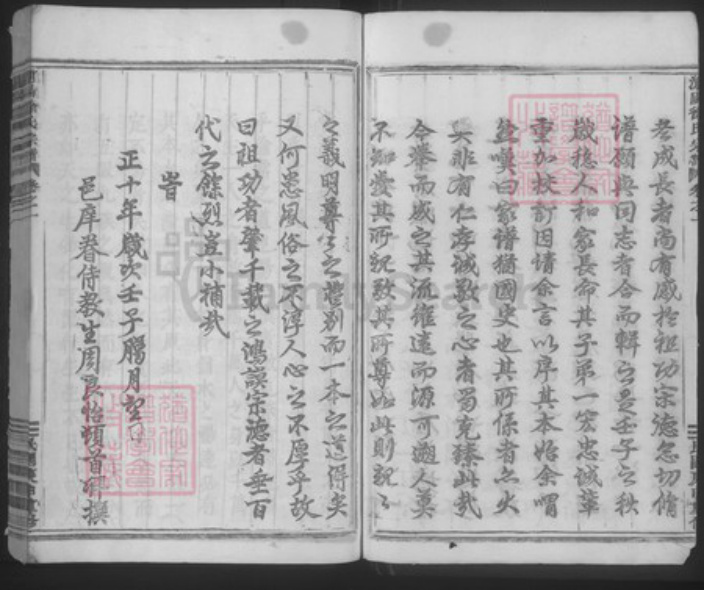 老成長者尚有感於祖功宗德急切脩
譜願與同志者合而輯之是壬子之秋
歲稔人和家長命其子弟一宏忠誠輩
重加校訂因請余言以序其本始余喟
然嘆曰家譜猶國史也其所係者亦大
矣非有仁孝誠敬之心者曷克臻此哉
今舉而成之其流雖遠而源可遡人莫
不知愛其所親敬其所尊如此則親親
之義明尊尊之禮別而一本之道得矣
又何患風俗之不淳人心之不厚乎故
曰祖功者肇千載之鴻謨宗德者垂百
代之餘烈豈小補哉
旹
正十年歲次壬子臘月
邑庠眷侍教生周良怡頓首拜撰
FamilySearch